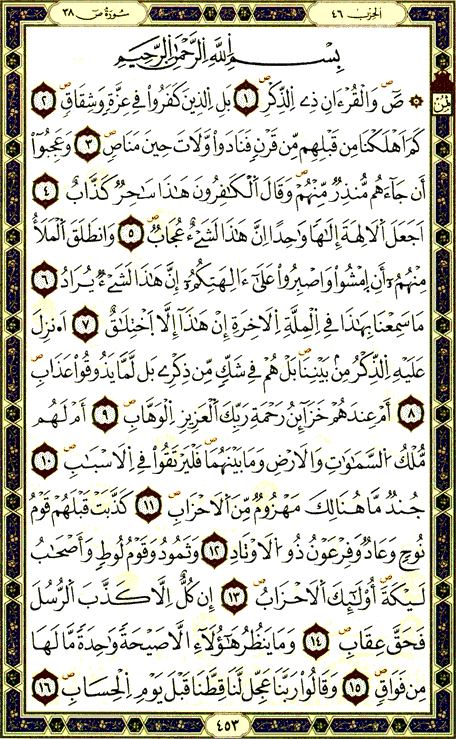 الحزب ٤٦
سورة ص ٣٨
بِسْمِ اللَّهِ الرَّحْمَٰنِ الرَّحِيمِ
ثمن
۞ صَٓ وَالْقُرْءَانِ ذِے اِلذِّكْرِ ١ بَلِ اِلذِينَ كَفَرُواْ فِے عِزَّةٖ وَشِقَاقٖ ٢
كَمَ اَهْلَكْنَا مِن قَبْلِهِم مِّن قَرْنٖ فَنَادَواْ وَّلَاتَ حِينَ مَنَاصٖ ٣ وَعَجِبُوٓاْ
أَن جَآءَهُم مُّنذِرٞ مِّنْهُمْ وَقَالَ اَلْكَٰفِرُونَ هَٰذَا سَٰحِرٞ كَذَّابٌ ٤
اَجَعَلَ اَلَالِهَةَ إِلَٰهاٗ وَٰحِداً اِنَّ هَٰذَا لَشَےْءٌ عُجَابٞ ٥ وَانطَلَقَ اَلْمَلَأُ
مِنْهُمُۥٓ أَنِ اِمْشُواْ وَاصْبِرُواْ عَلَيٰٓ ءَالِهَتِكُمُۥٓ إِنَّ هَٰذَا لَشَےْءٞ يُرَادُ ٦
مَا سَمِعْنَا بِهَٰذَا فِے اِلْمِلَّةِ اِلَاخِرَةِ إِنْ هَٰذَآ إِلَّا اَخْتِلَٰقٌ ٧ اَ۟نزِلَ
عَلَيْهِ اِلذِّكْرُ مِنۢ بَيْنِنَا بَلْ هُمْ فِے شَكّٖ مِّن ذِكْرِے بَل لَّمَّا يَذُوقُواْ عَذَابِ
٨ أَمْ عِندَهُمْ خَزَآئِنُ رَحْمَةِ رَبِّكَ اَلْعَزِيزِ اِلْوَهَّابِ ٩ أَمْ لَهُم
مُّلْكُ اُلسَّمَٰوَٰتِ وَالَارْضِ وَمَا بَيْنَهُمَا فَلْيَرْتَقُواْ فِے اِلَاسْبَٰبِ ١٠
جُندٞ مَّا هُنَالِكَ مَهْزُومٞ مِّنَ اَلَاحْزَابِ ١١ كَذَّبَتْ قَبْلَهُمْ قَوْمُ
نُوحٖ وَعَادٞ وَفِرْعَوْنُ ذُو اُلَاوْتَادِ ١٢ وَثَمُودُ وَقَوْمُ لُوطٖ وَأَصْحَٰبُ
لَيْكَةَ أُوْلَٰٓئِكَ اَلَاحْزَابُ ١٣ إِن كُلٌّ اِلَّا كَذَّبَ اَلرُّسُلَ
فَحَقَّ عِقَابِ ١٤ وَمَا يَنظُرُ هَٰٓؤُلَآءِ الَّا صَيْحَةٗ وَٰحِدَةٗ مَّا لَهَا
مِن فَوَاقٖ ١٥ وَقَالُواْ رَبَّنَا عَجِّل لَّنَا قِطَّنَا قَبْلَ يَوْمِ اِلْحِسَابِ ١٦
٤٥٣